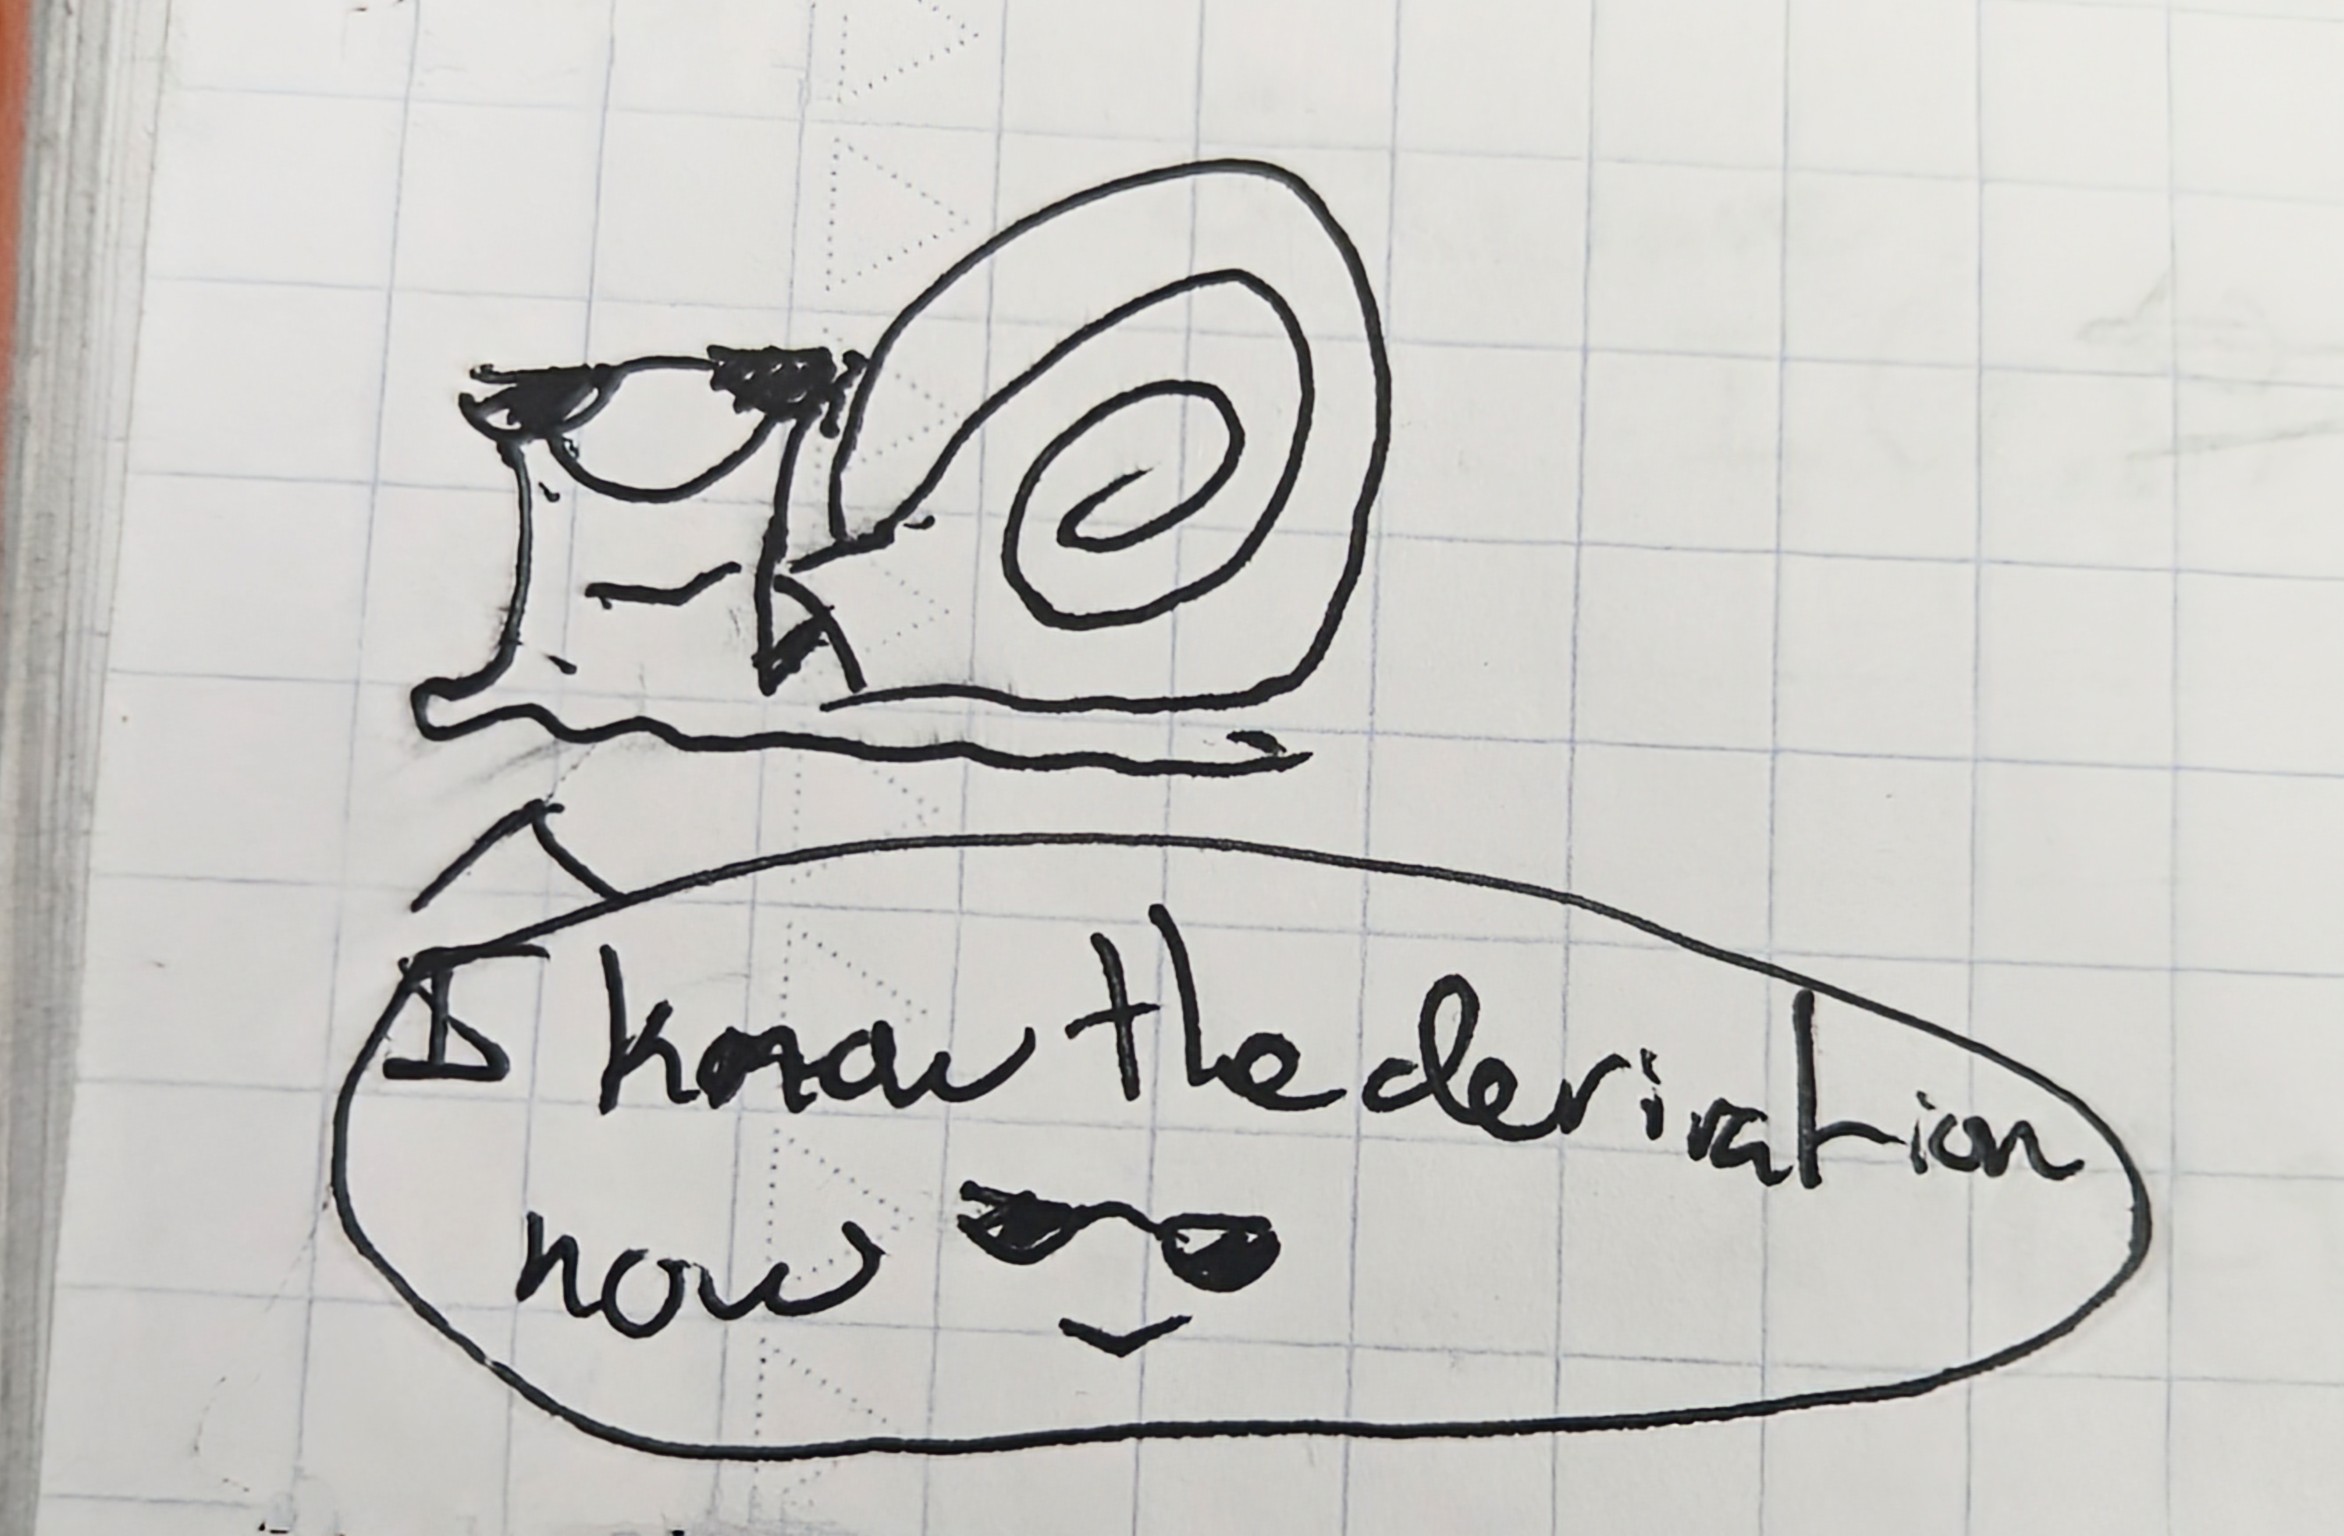 I know the derivation
now